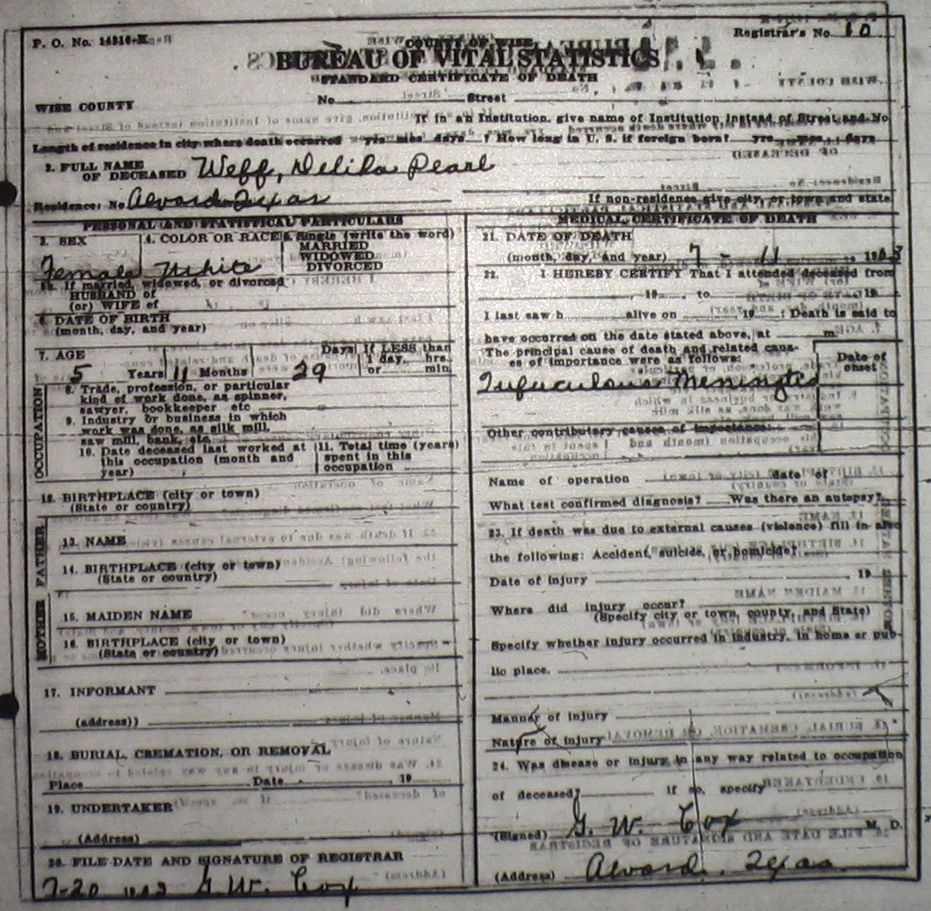 P. O. No. 14316-K
Registrar's No. 10
COUNTY OF WISE
BUREAU OF VITAL STATISTICS
STANDARD CERTIFICATE OF DEATH
WISE COUNTY
No. Street
If in an Institution, give name of Institution instead of Street and No
Length of residence in city where death occurred yrs mos days ? How long in U. S. if foreign born? yrs mos days
2. FULL NAME
OF DECEASED Weff, Delika Pearl
Residence: No Alvord Texas
If non-residence give city or town and state
PERSONAL AND STATISTICAL PARTICULARS
3. SEX
4. COLOR OR RACE
5. Single (write the word)
MARRIED
WIDOWED
DIVORCED
Female White
5a. If married, widowed, or divorced
HUSBAND of
(or) WIFE of
6. DATE OF BIRTH
(month, day, and year)
7. AGE
Days
If LESS than
5 Years 11 Months 29
1 day, hrs.
or min.
OCCUPATION
8. Trade, profession, or particular
kind of work done, as spinner,
sawyer, bookkeeper etc
9. Industry or business in which
work was done, as silk mill,
saw mill, bank, etc.
10. Date deceased last worked at
this occupation (month and
year)
11. Total time (years)
spent in this
occupation
12. BIRTHPLACE (city or town)
(State or country)
FATHER
13. NAME
14. BIRTHPLACE (city or town)
(State or country)
MOTHER
15. MAIDEN NAME
16. BIRTHPLACE (city or town)
(State or country)
17. INFORMANT
(address))
18. BURIAL, CREMATION, OR REMOVAL
Place Date 19
19. UNDERTAKER
(Address)
20. FILE DATE AND SIGNATURE OF REGISTRAR
7-20 G. W. Cox
MEDICAL CERTIFICATE OF DEATH
21. DATE OF DEATH
(month, day, and year) 7 - 11
22. I HEREBY CERTIFY That I attended deceased from
, 19 , to 19
I last saw h alive on , 19 : Death is said to
have occurred on the date stated above, at m.
The principal cause of death and related caus-
es of importance were as follows:
Date of
onset
Other contributory causes of importance:
Name of operation date of
What test confirmed diagnosis? Was there an autopsy?
23. If death was due to external causes (violence) fill in also
the following: Accident, suicide, or homicide?
Date of injury 19
Where did injury occur?
(Specify city or town, county, and State)
Specify whether injury occurred in industry, in home or pub-
lic place.
Manner of injury
Nature of injury
24. Was disease or injury in any way related to occupation
of deceased? If so, specify
(Signed) G. W. Cox M. D.
(Address) Alvord, Texas